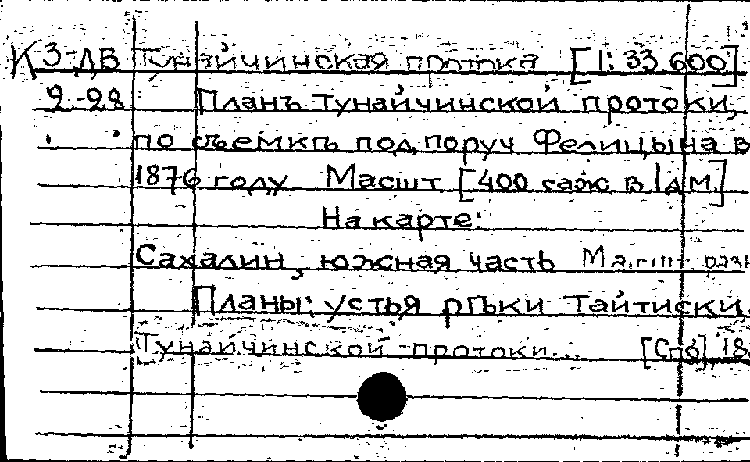 К 3-ДВ Тунайчинская протока [1: 33.600]
9-28 Планъ Тунайчинской протоки,
по съемкѣ под.поруч Фелицына в
1876 году Масшт [400 саж в 1 дм.]
На карте:
Сахалин, южная часть Масшт разн
Планы: устья рѣки Тайтиски.
Тунайчинской протоки... [Спб], 18